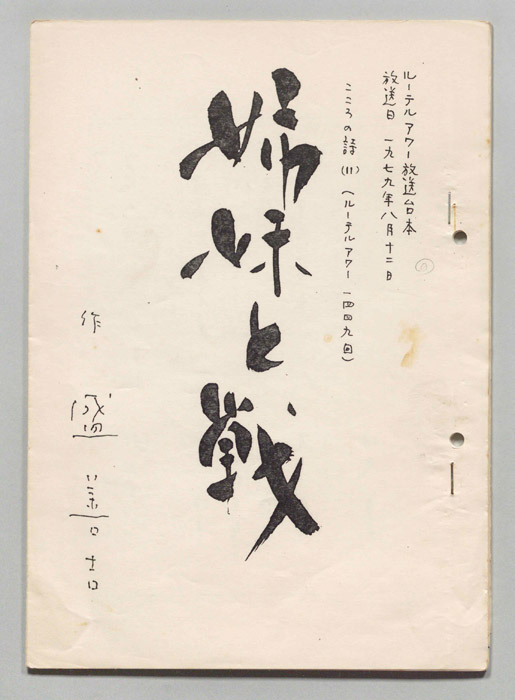 ルーテル アワー放送台本
放送日 一九七九年八月十二日
こころの詩 (11) (ルーテルアワー 一四四九回)
姉妹と戦
作 盛 善吉